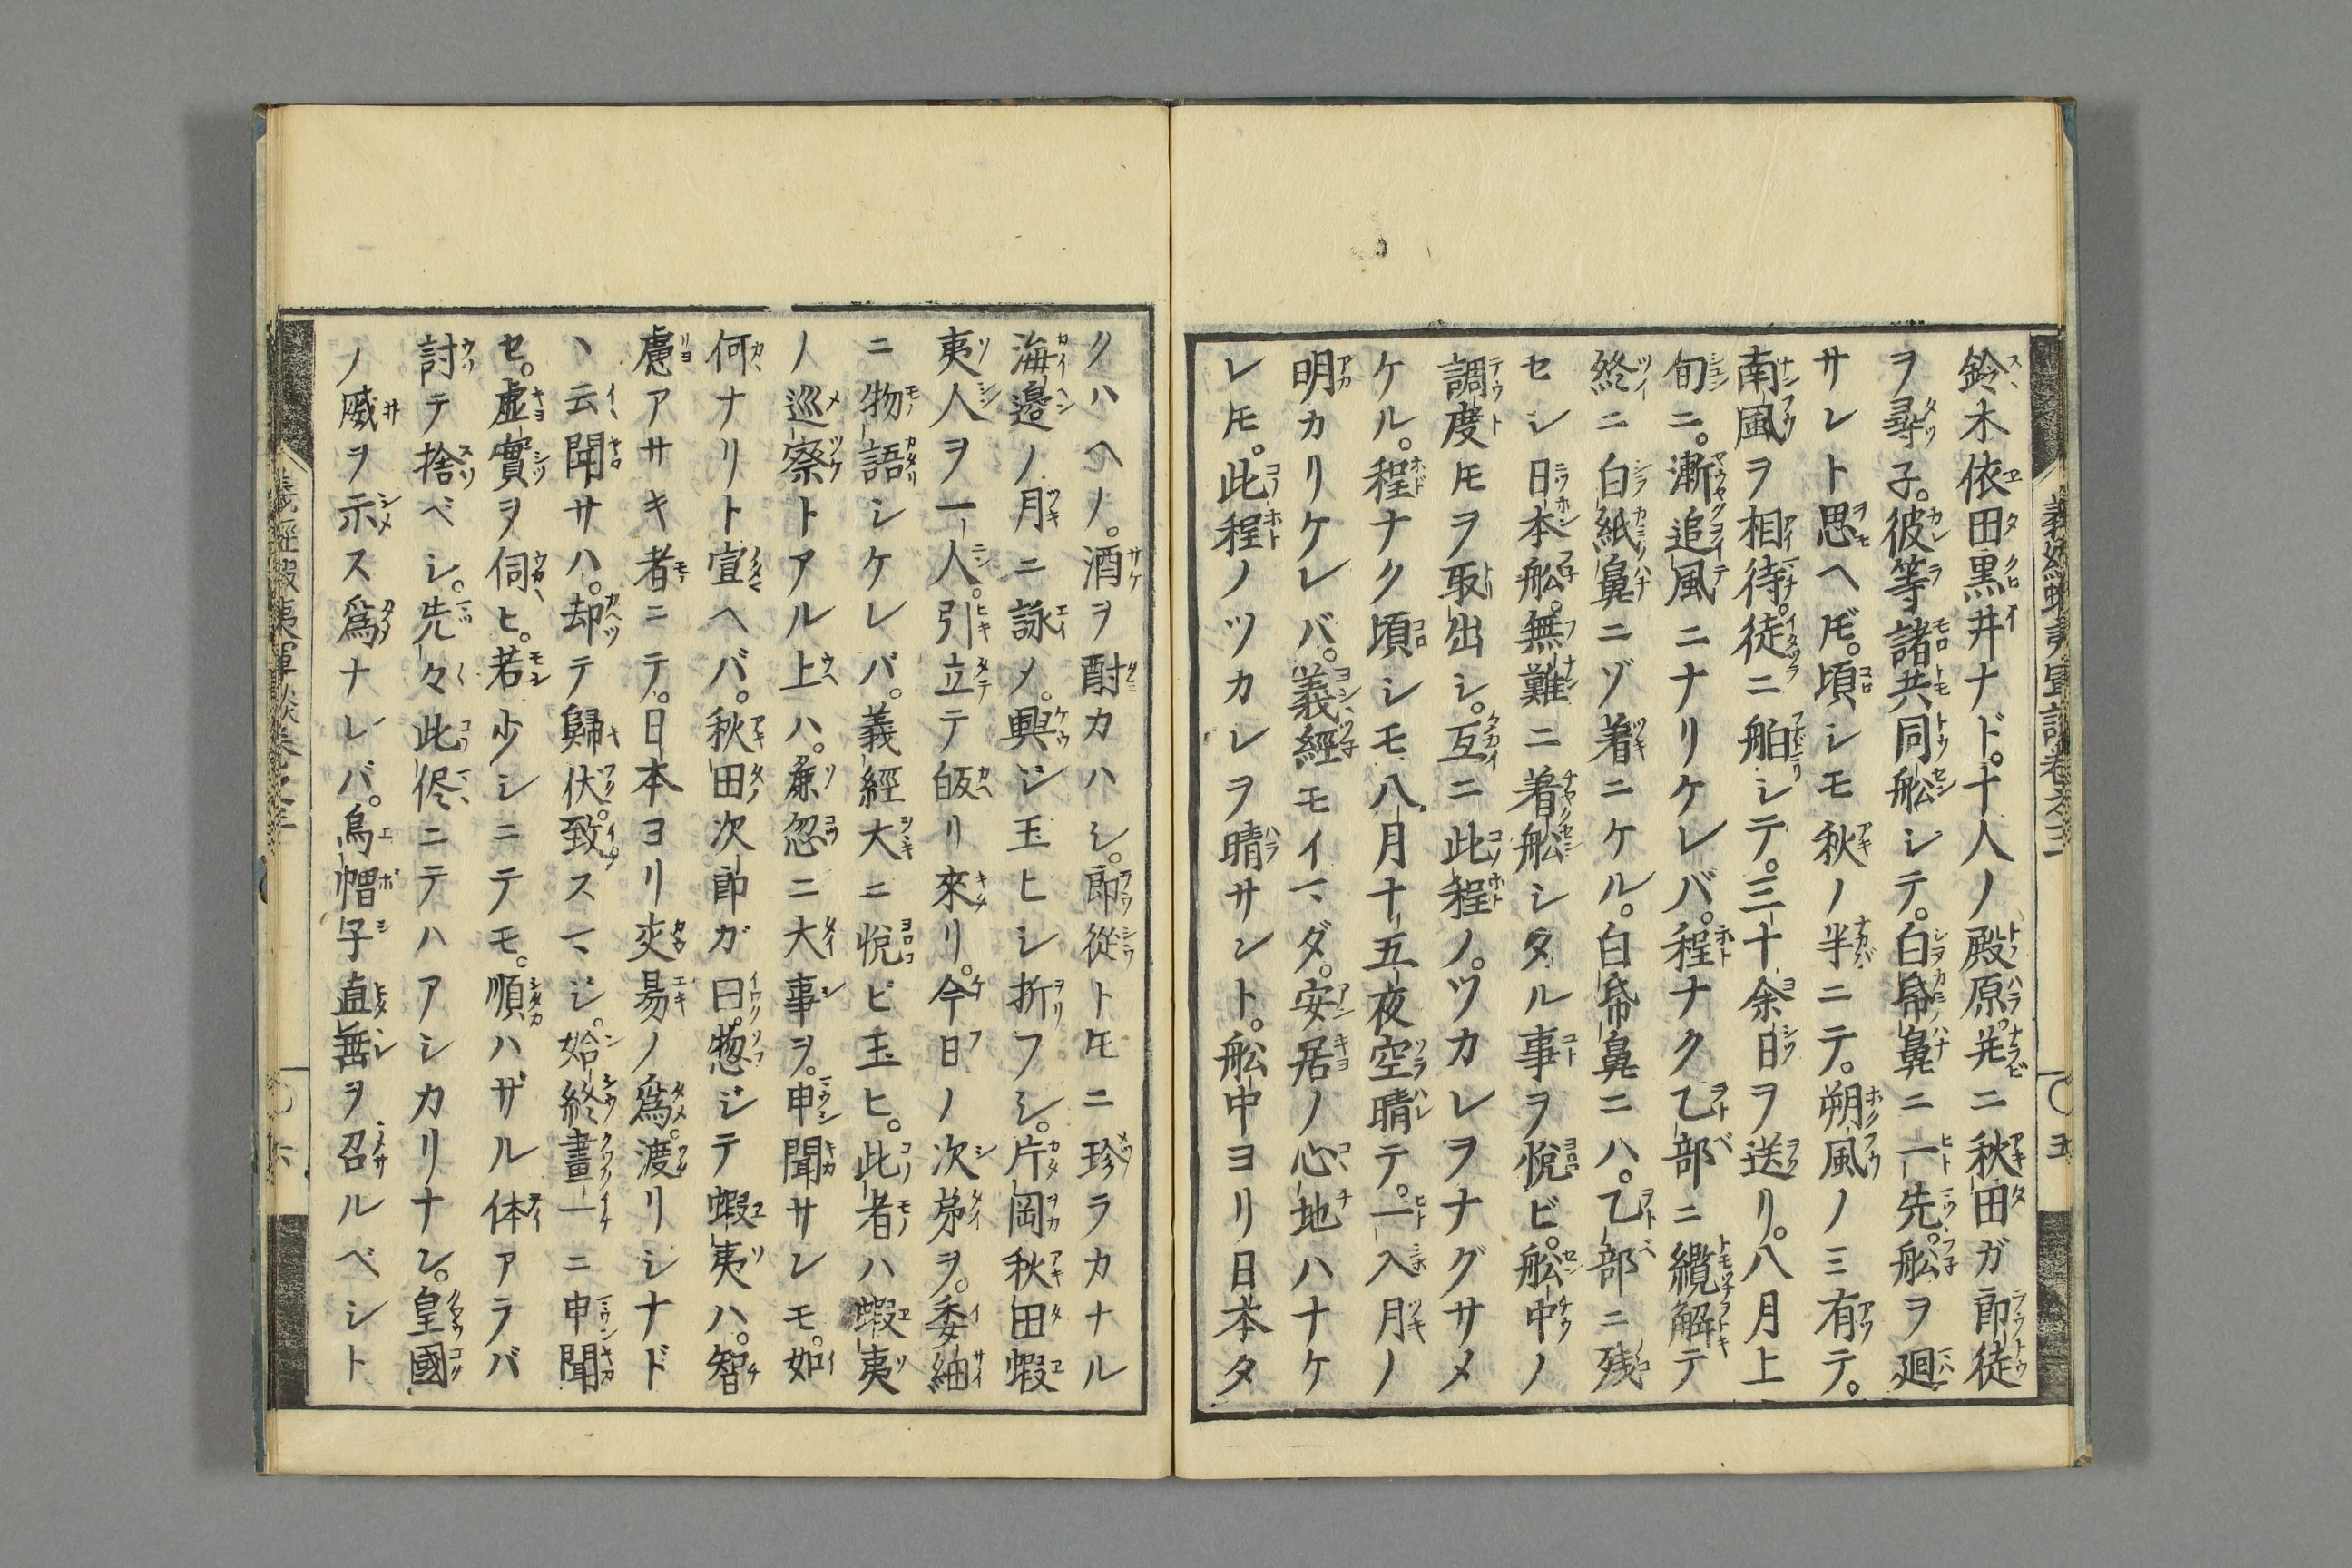 鈴木依田黒井ナド。十人ノ殿原。并ニ秋田ガ郎徒
ヲ尋子。彼等諸共同舩シテ。白帋鼻ニ一先。舩ヲ廻
サレト思ヘ𪜈。頃シモ秋ノ半ニテ。朔風ノミ有テ。
南風ヲ相待。徒ニ舶シテ。三十余日ヲ送リ。八月上
旬ニ。漸追風ニナリケレバ。程ナク乙部ニ纜解テ
終ニ白紙鼻ニゾ着ニケル。白帋鼻ニハ。乙部ニ残
セシ日本舩。無難ニ着舩シタル事ヲ悦ビ。舩中ノ
調度𪜈ヲ取出シ。互ニ此程ノ。ツカレヲナグサメ
ケル。程ナク頃シモ八月十五夜空晴テ。一入月ノ
明カリケレバ。義經モイマダ。安居ノ心地ハナケ
レ𪜈。此程ノツカレヲ晴サント。舩中ヨリ日本タ
クハヘノ。酒ヲ酎カハシ。郎從ト𪜈ニ珍ラカナル
海邉ノ月ニ詠メ。興ジ玉ヒシ折フシ。片岡秋田蝦
夷人ヲ一人。引立テ皈リ來リ。今日ノ次第ヲ。委細
ニ物語シケレバ。義經大ニ悦ビ玉ヒ。此者ハ蝦夷
ノ巡察トアル上ハ。麁忽ニ大事ヲ。申聞サレモ。如
何ナリト宣ヘバ。秋田次郎ガ曰。惣ジテ蝦夷ハ。智
慮アサキ者ニテ。日本ヨリ交易ノ爲。渡リシナド
ヽ云聞サハ。却テ歸伏。致スマジ。始終畫一ニ申聞
セ。虚實ヲ伺ヒ。若少シニテモ。順ハザル体アラバ
討テ捨ベシ。先々此侭ニテハアシカリナン。皇國
ノ威ヲ示ス爲ナレバ。烏帽子直垂ヲ召ルベシト
義經蝦夷軍談卷之三
〇五
義經蝦夷軍談卷之三
〇六